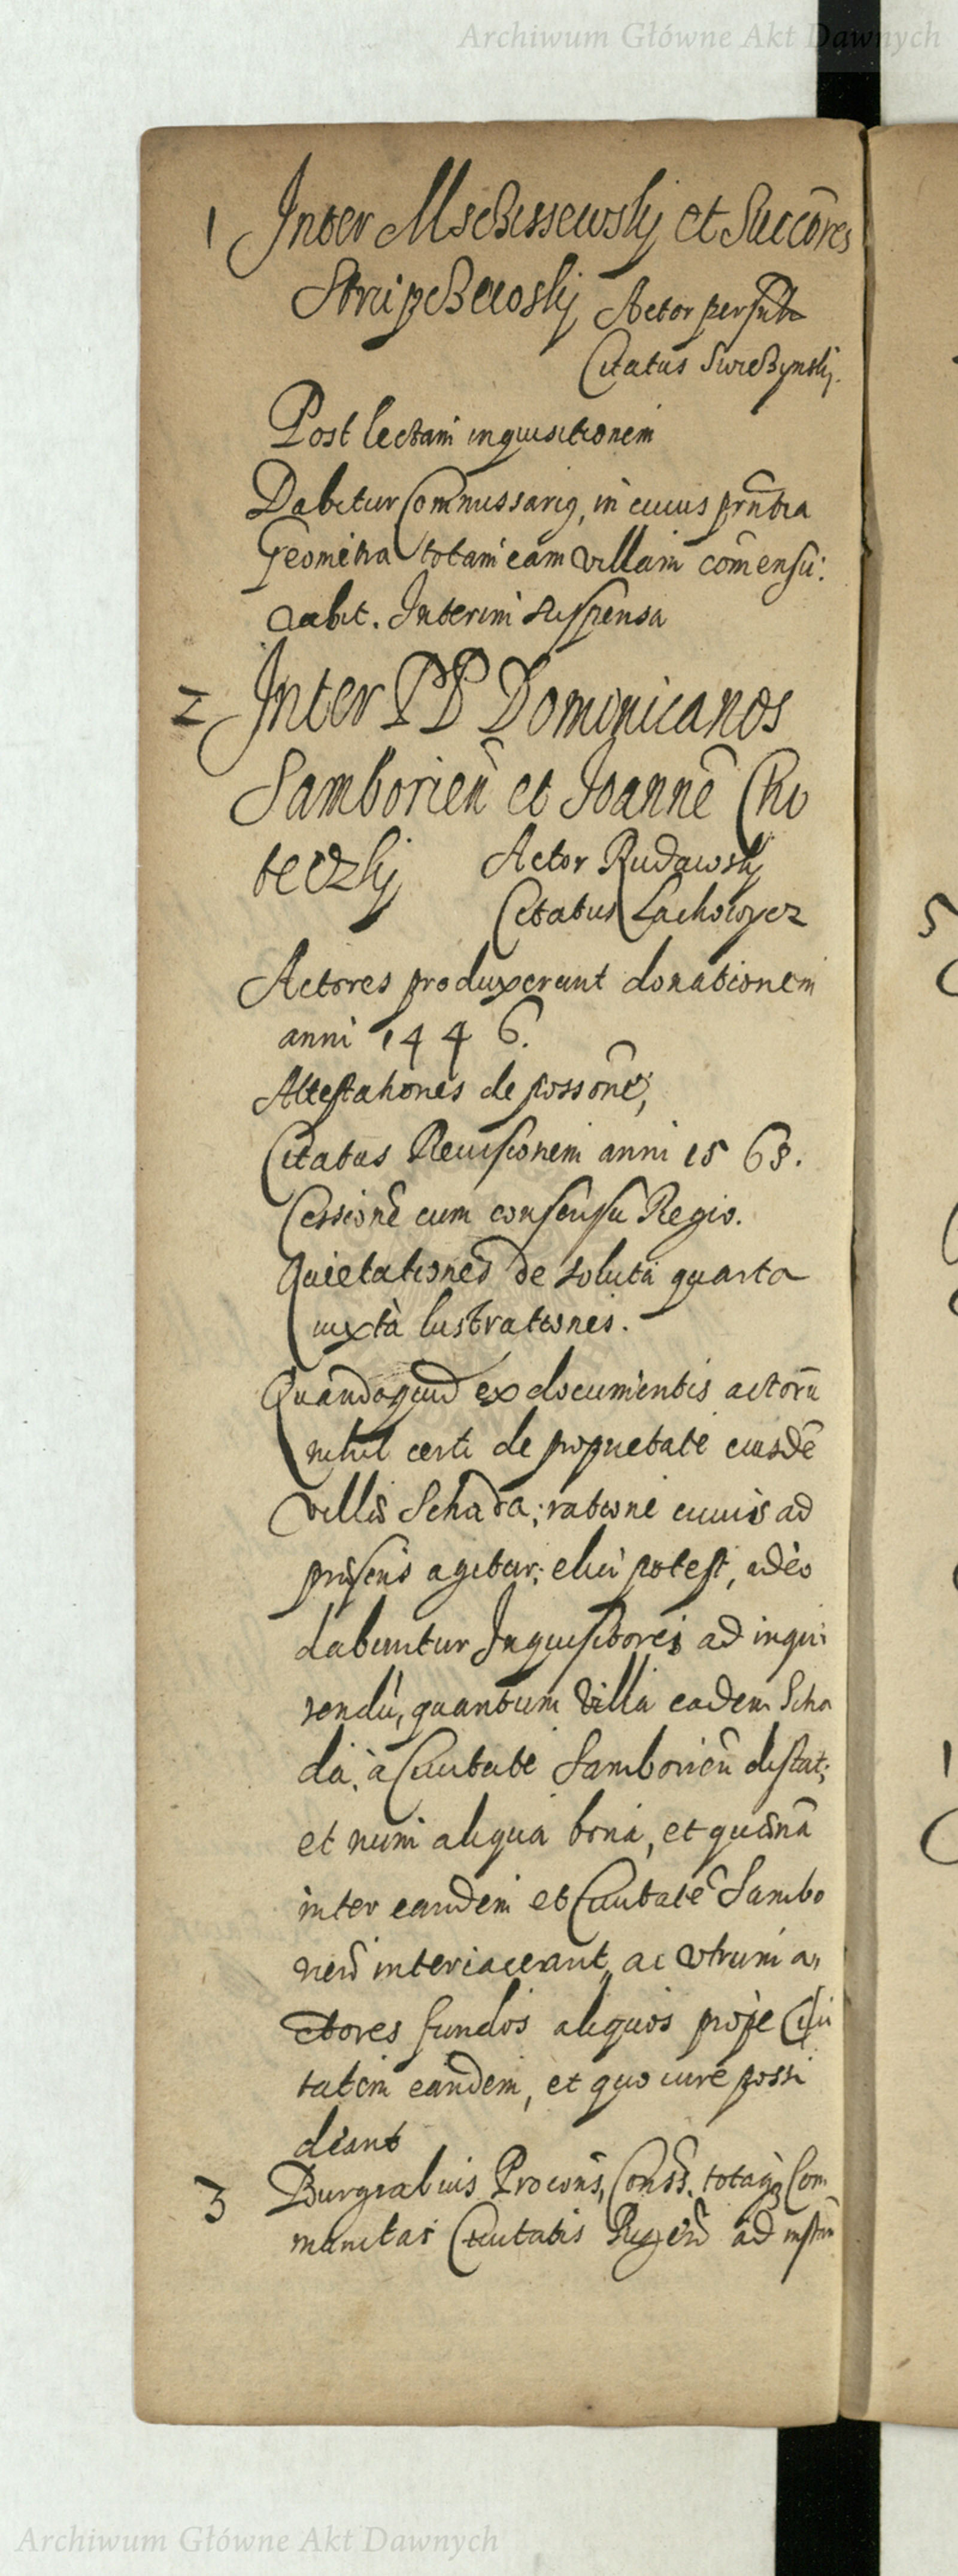 Archiwum Główne Akt Dawnych
1 Inter Msciszewsky et Succōres
Actor
Citatus Swieżynsky.
Post lectam inquisitionem
Dabitur Commissarig, in cuius prn̄tia
Geometra totam eam villam com̄ensu:
rabit. Interim suspensa
2 Inter PP Dominicanos
Samborien̄ et Joannē Cho
teczky Actor Rudawsky
Citatus Lachowycz
Actores produxerunt donationem
anni 1446.
Attestationes de possōne,
Citatus Reuisionem anni 1563.
Cessionē cum consensu Regio.
Quietationes de soluta quarta
iuxtà lustrationes.
Quandoquid ex documentis actorū
nihil certi de proprietate eiusdē
villae Schada; ratione cuius ad
prāesens agitur; elici potest, adeo
dabuntur Inquisitores ad inqui
rendū, quantum villa eadem Scha
da, à Ciuitate Samborien̄ distat;
et num aliqua bona, et quaenā
inter eandem et Ciuitatē Sambo
rien̄ interiaceant, ac vtrum a,
ctores fundos aliquos prope Ciui
tatem eandem, et quo iure possi
deant
3 Burgrabius Procons, Conss. totaq3 Com
munitas Ciuitatis ad instan
5
1
Archiwum Główne Akt Dawnych